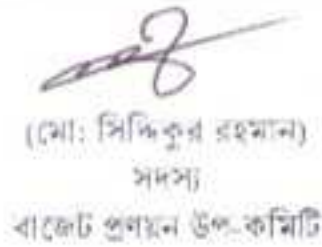 (মো: সিদ্দিকুর রহমান)
সদস্য
বাজেট প্রণয়ন উপ-কমিটি